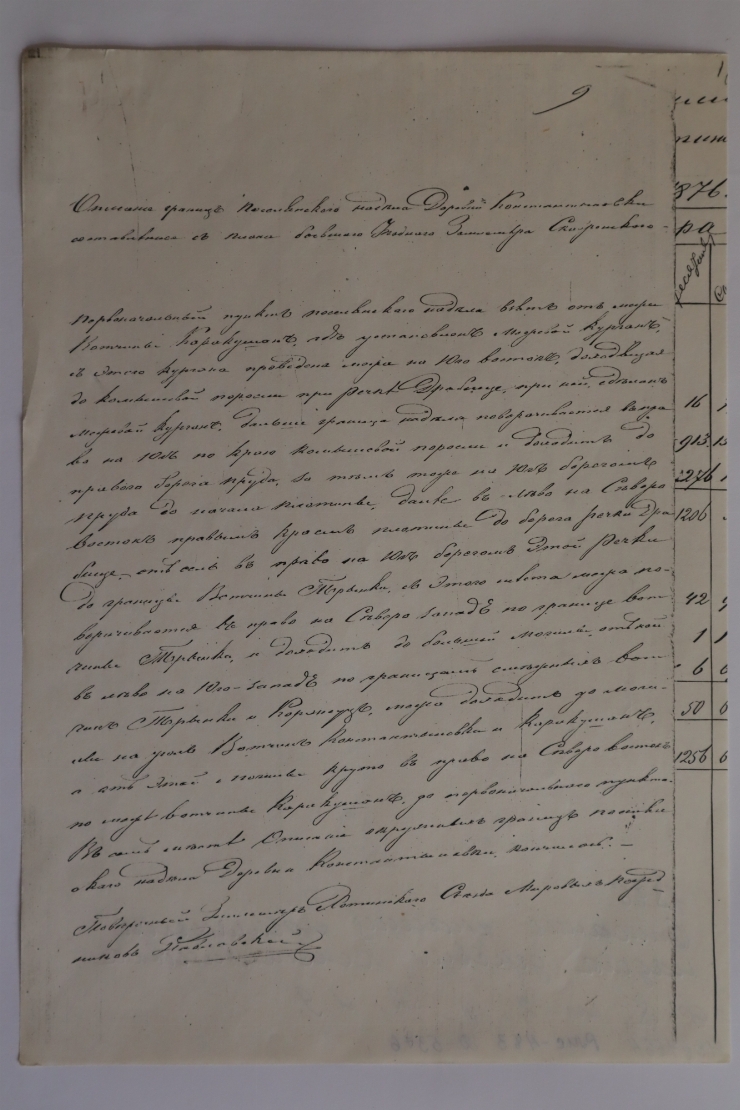 9
Описание границъ поселянского надела Деревни Константиновки
составлено съ плана бывшаго Уѣзднаго Землемѣра
Первоначальный пунктъ поселянскаго надела взятъ отъ межи
Вотчины Каракушанъ, гдѣ установленъ Межевой курганъ,
съ этого кургана проведена межа на Юго востокъ, доходящая
до камышевой поросли при речкѣ Драбище, при ней сделанъ
межевой курганъ, дальше граница надела поворачивается впра
во на Югъ по краю камышевой поросли и доходитъ до
праваго берега пруда, за тѣмъ тоже на Югъ берегомъ
пруда до начала плотины, далѣе въ лѣво на Сѣверо
востокъ правымъ краемъ плотины до берега речки Дра
бище, отъ селѣ въ право на Югъ берегомъ этой речки
до границы Вотчины Тырнки, съ этого места межа по-
ворачивается въ право на Сѣверо западъ по границе вот
чины и доходитъ до большей могилы, отъ ней
въ лѣво на Юго-западъ по границамъ смежныхъ вот
чинъ и межа доходитъ до моги
лы на углѣ Вотчинъ Константиновки и Каракушанъ,
а отъ этой могилы круто въ право на Сѣверо востокъ
по межѣ вотчины Каракушанъ, до первоначальнаго пункта.
Въ семъ месте Описание окружныхъ границъ поселян
скаго надела Деревни Константиновки кончилось. —
Землемеръ Хотинского Съезда Мировыхъ Посред
никовъ
876.
ра
16
913
2276
1206
42
1
6
50
1256